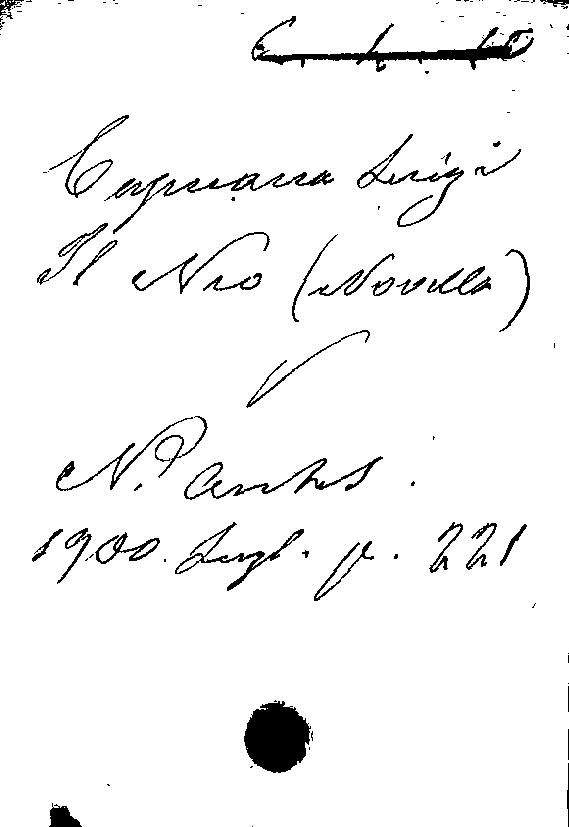 Capuana Luigi
Il Neo (Novella)
N.a Antol.
1900. Lugl. p. 221